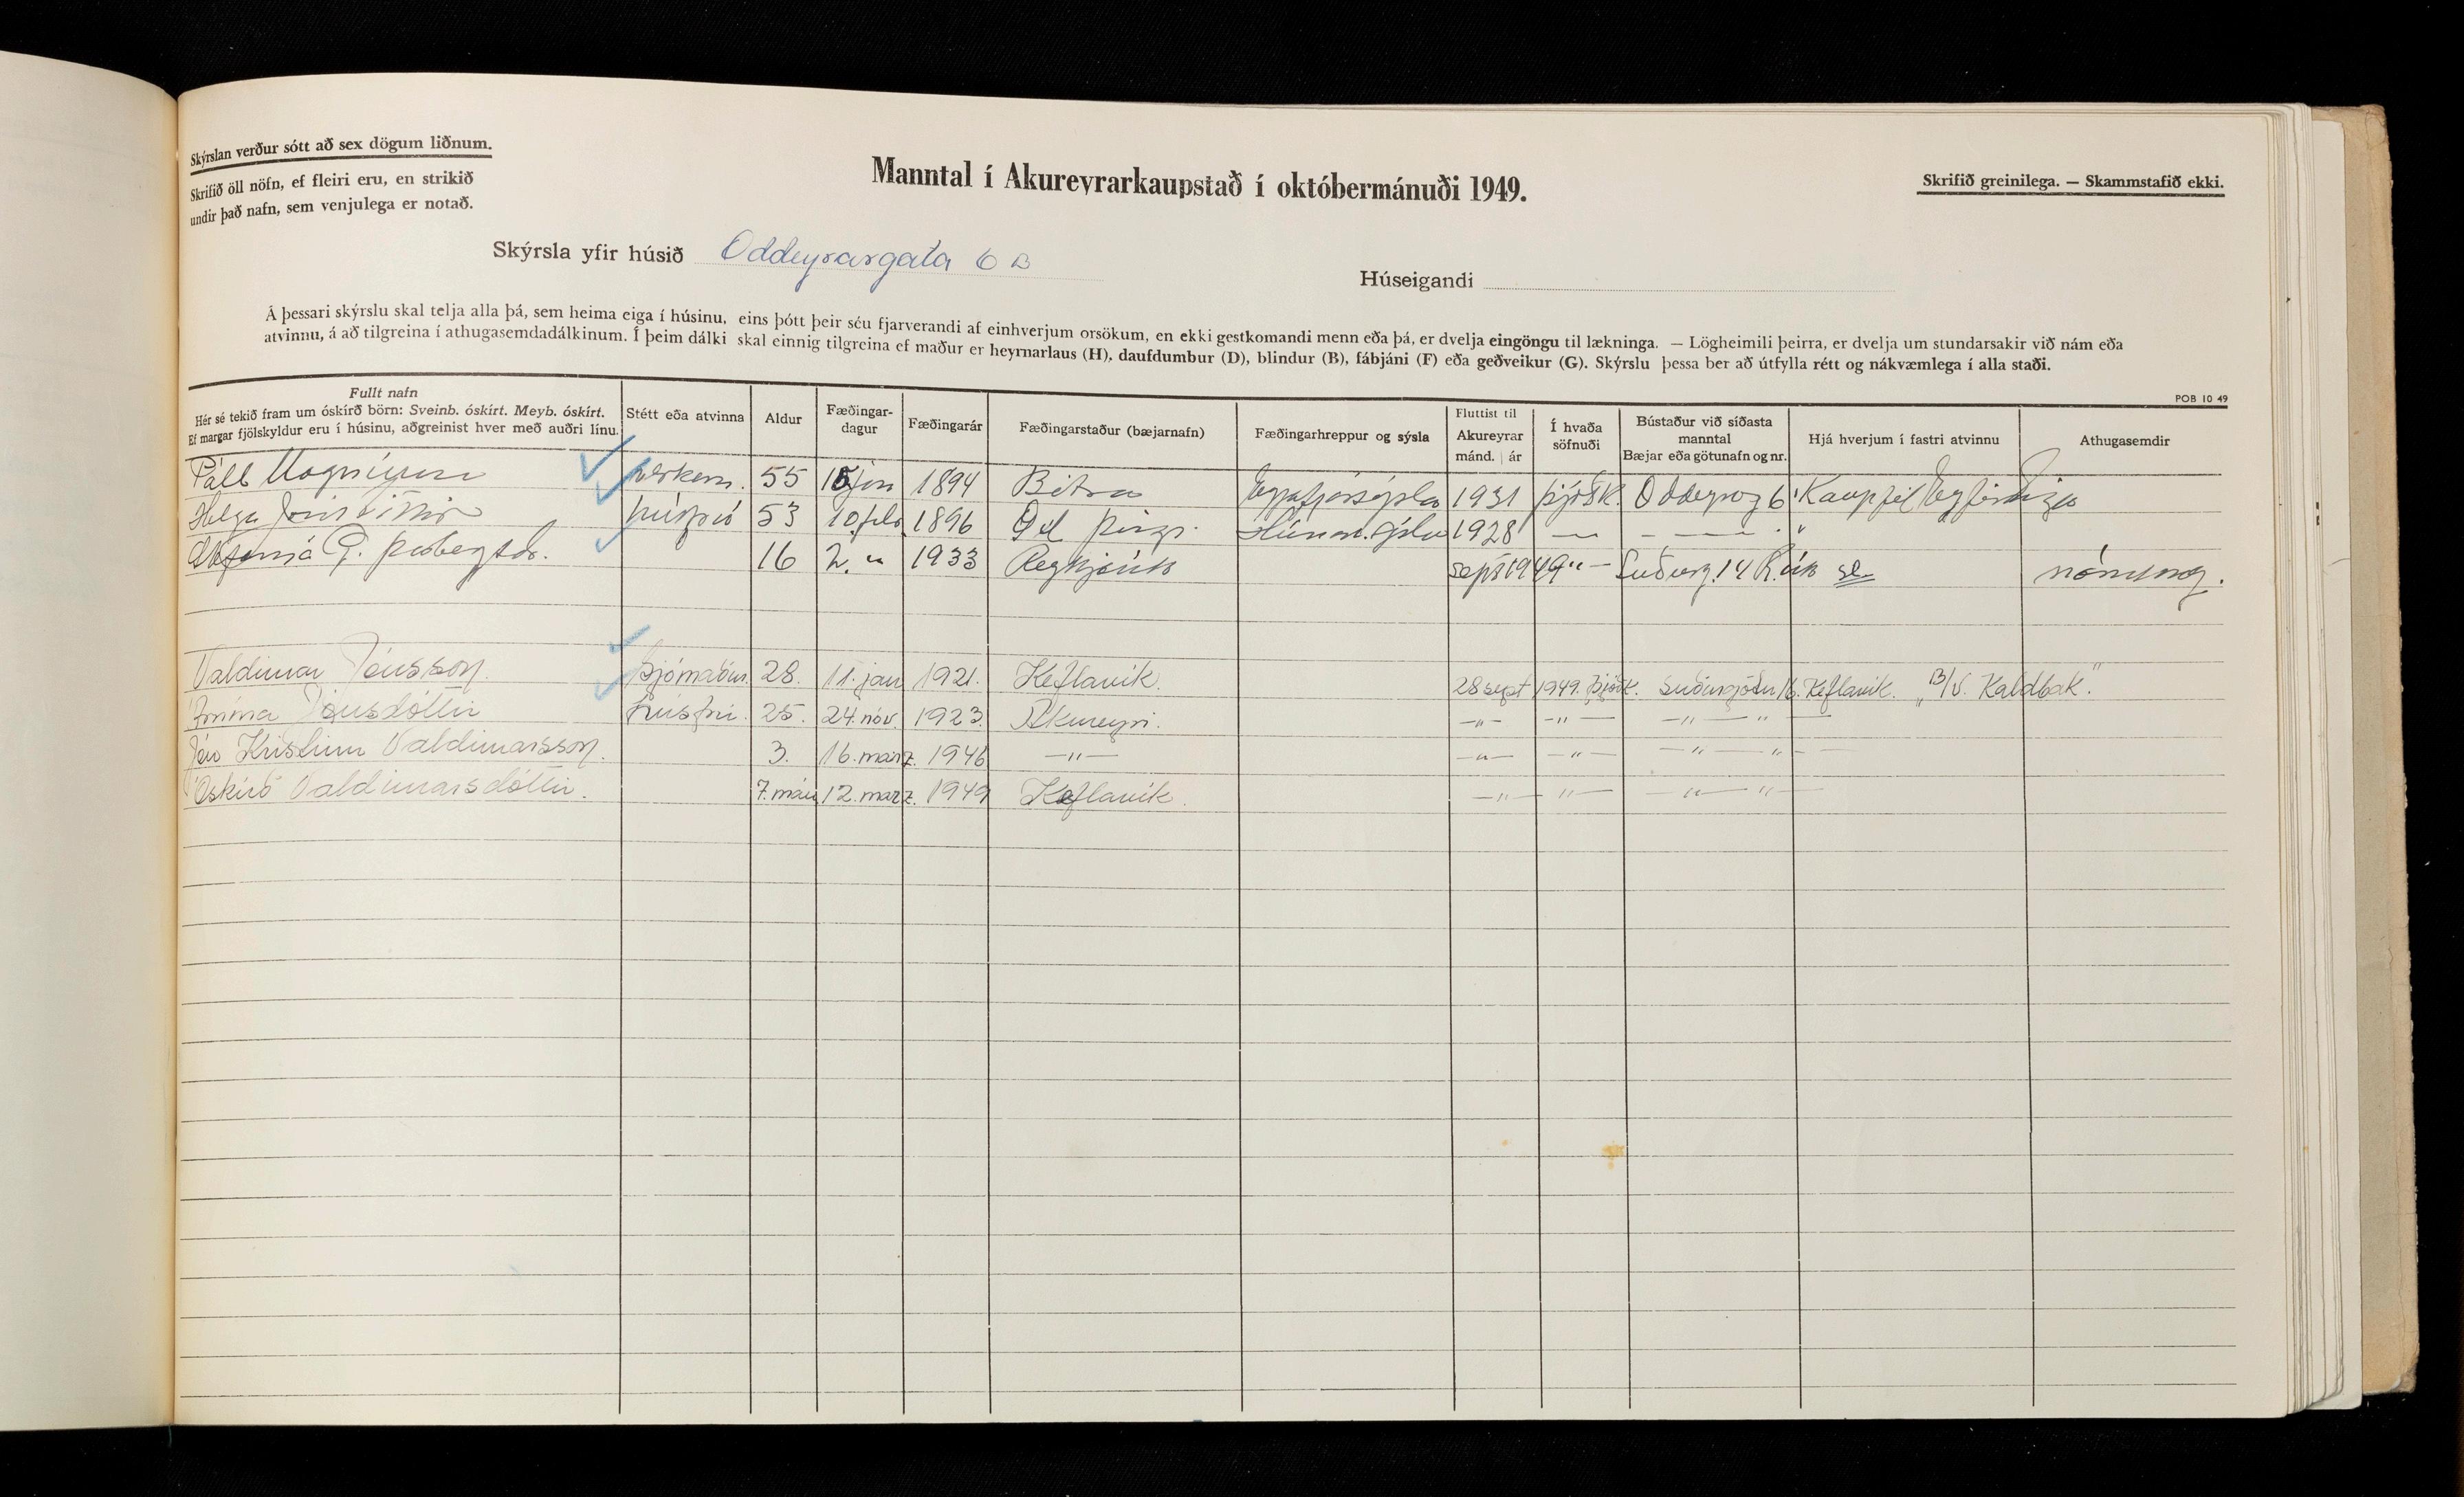 Skýrslan verður sótt að sex dögum liðnum.
Skrifið öll nöfn, ef fleiri eru, en strikið
undir það nafn, sem venjulega er notað.
Manntal í Akureyrarkaupstað í októbermánuði 1949.
Skrifið greinilega. — Skammstafið ekki.
Skýrsla yfir húsið Oddeyrargata 6 B
Húseigandi
Á þessari skýrslu skal telja alla þá, sem heima eiga í húsinu, eins þótt þeir séu fjarverandi af einhverjum orsökum, en ekki gestkomandi menn eða þá, er dvelja eingöngu til lækninga. — Lögheimili þeirra, er dvelja um stundarsakir við nám eða
atvinnu, á að tilgreina í athugasemdadálkinum. Í þeim dálki skal einnig tilgreina ef maður er heyrnarlaus (H), daufdumbur (D), blindur (B), fábjáni (F) eða geðveikur (G). Skýrslu þessa ber að útfylla rétt og nákvæmlega í alla staði.
POB 10 49
Fullt nafn
Hér sé tekið fram um óskírð börn: Sveinb. óskírt. Meyb. óskírt.
Ef margar fjölskyldur eru í húsinu, aðgreinist hver með auðri línu.
Stétt eða atvinna
Aldur
Fæðingar-
dagur
Fæðingarár
Fæðingarstaður (bæjarnafn)
Fæðingarhreppur og sýsla
Fluttist til
Akureyrar
mánd. | ár
Í hvaða
söfnuði
Bústaður við síðasta
manntal
Bæjar eða götunafn og nr.
Hjá hverjum í fastri atvinnu
Athugasemdir
Páll Magnússon verkam. 55 15 jún 1894 Bitra 1931 þjóðk. Oddeyrarg 6
Helga Jónsdóttir húsfrú 53 10 feb 1896 Húnav.sýsla 1928 — — — "
16 2. " 1933 Reykjavík sept 1949 " — Suðurg. 14 R.vík
Valdimar Jónsson. Sjómaður. 28. 11. jan 1921. Keflavík. 28 sept 1949. Þjóðk. Suðurgötu 16. Keflavik. „B/v. Kaldbak".
Emma Jónsdóttir húsfrú. 25. 24. nóv. 1923. Akureyri. —"— —"— —"— "—
Jón Kristinn Valdimarsson. 3. 16. marz. 1946 —"— —"— —"— —"— "—
Óskírð Valdimarsdóttir. 7. mán 12. marz. 1949 Keflavík. —"— —"— —"— "—